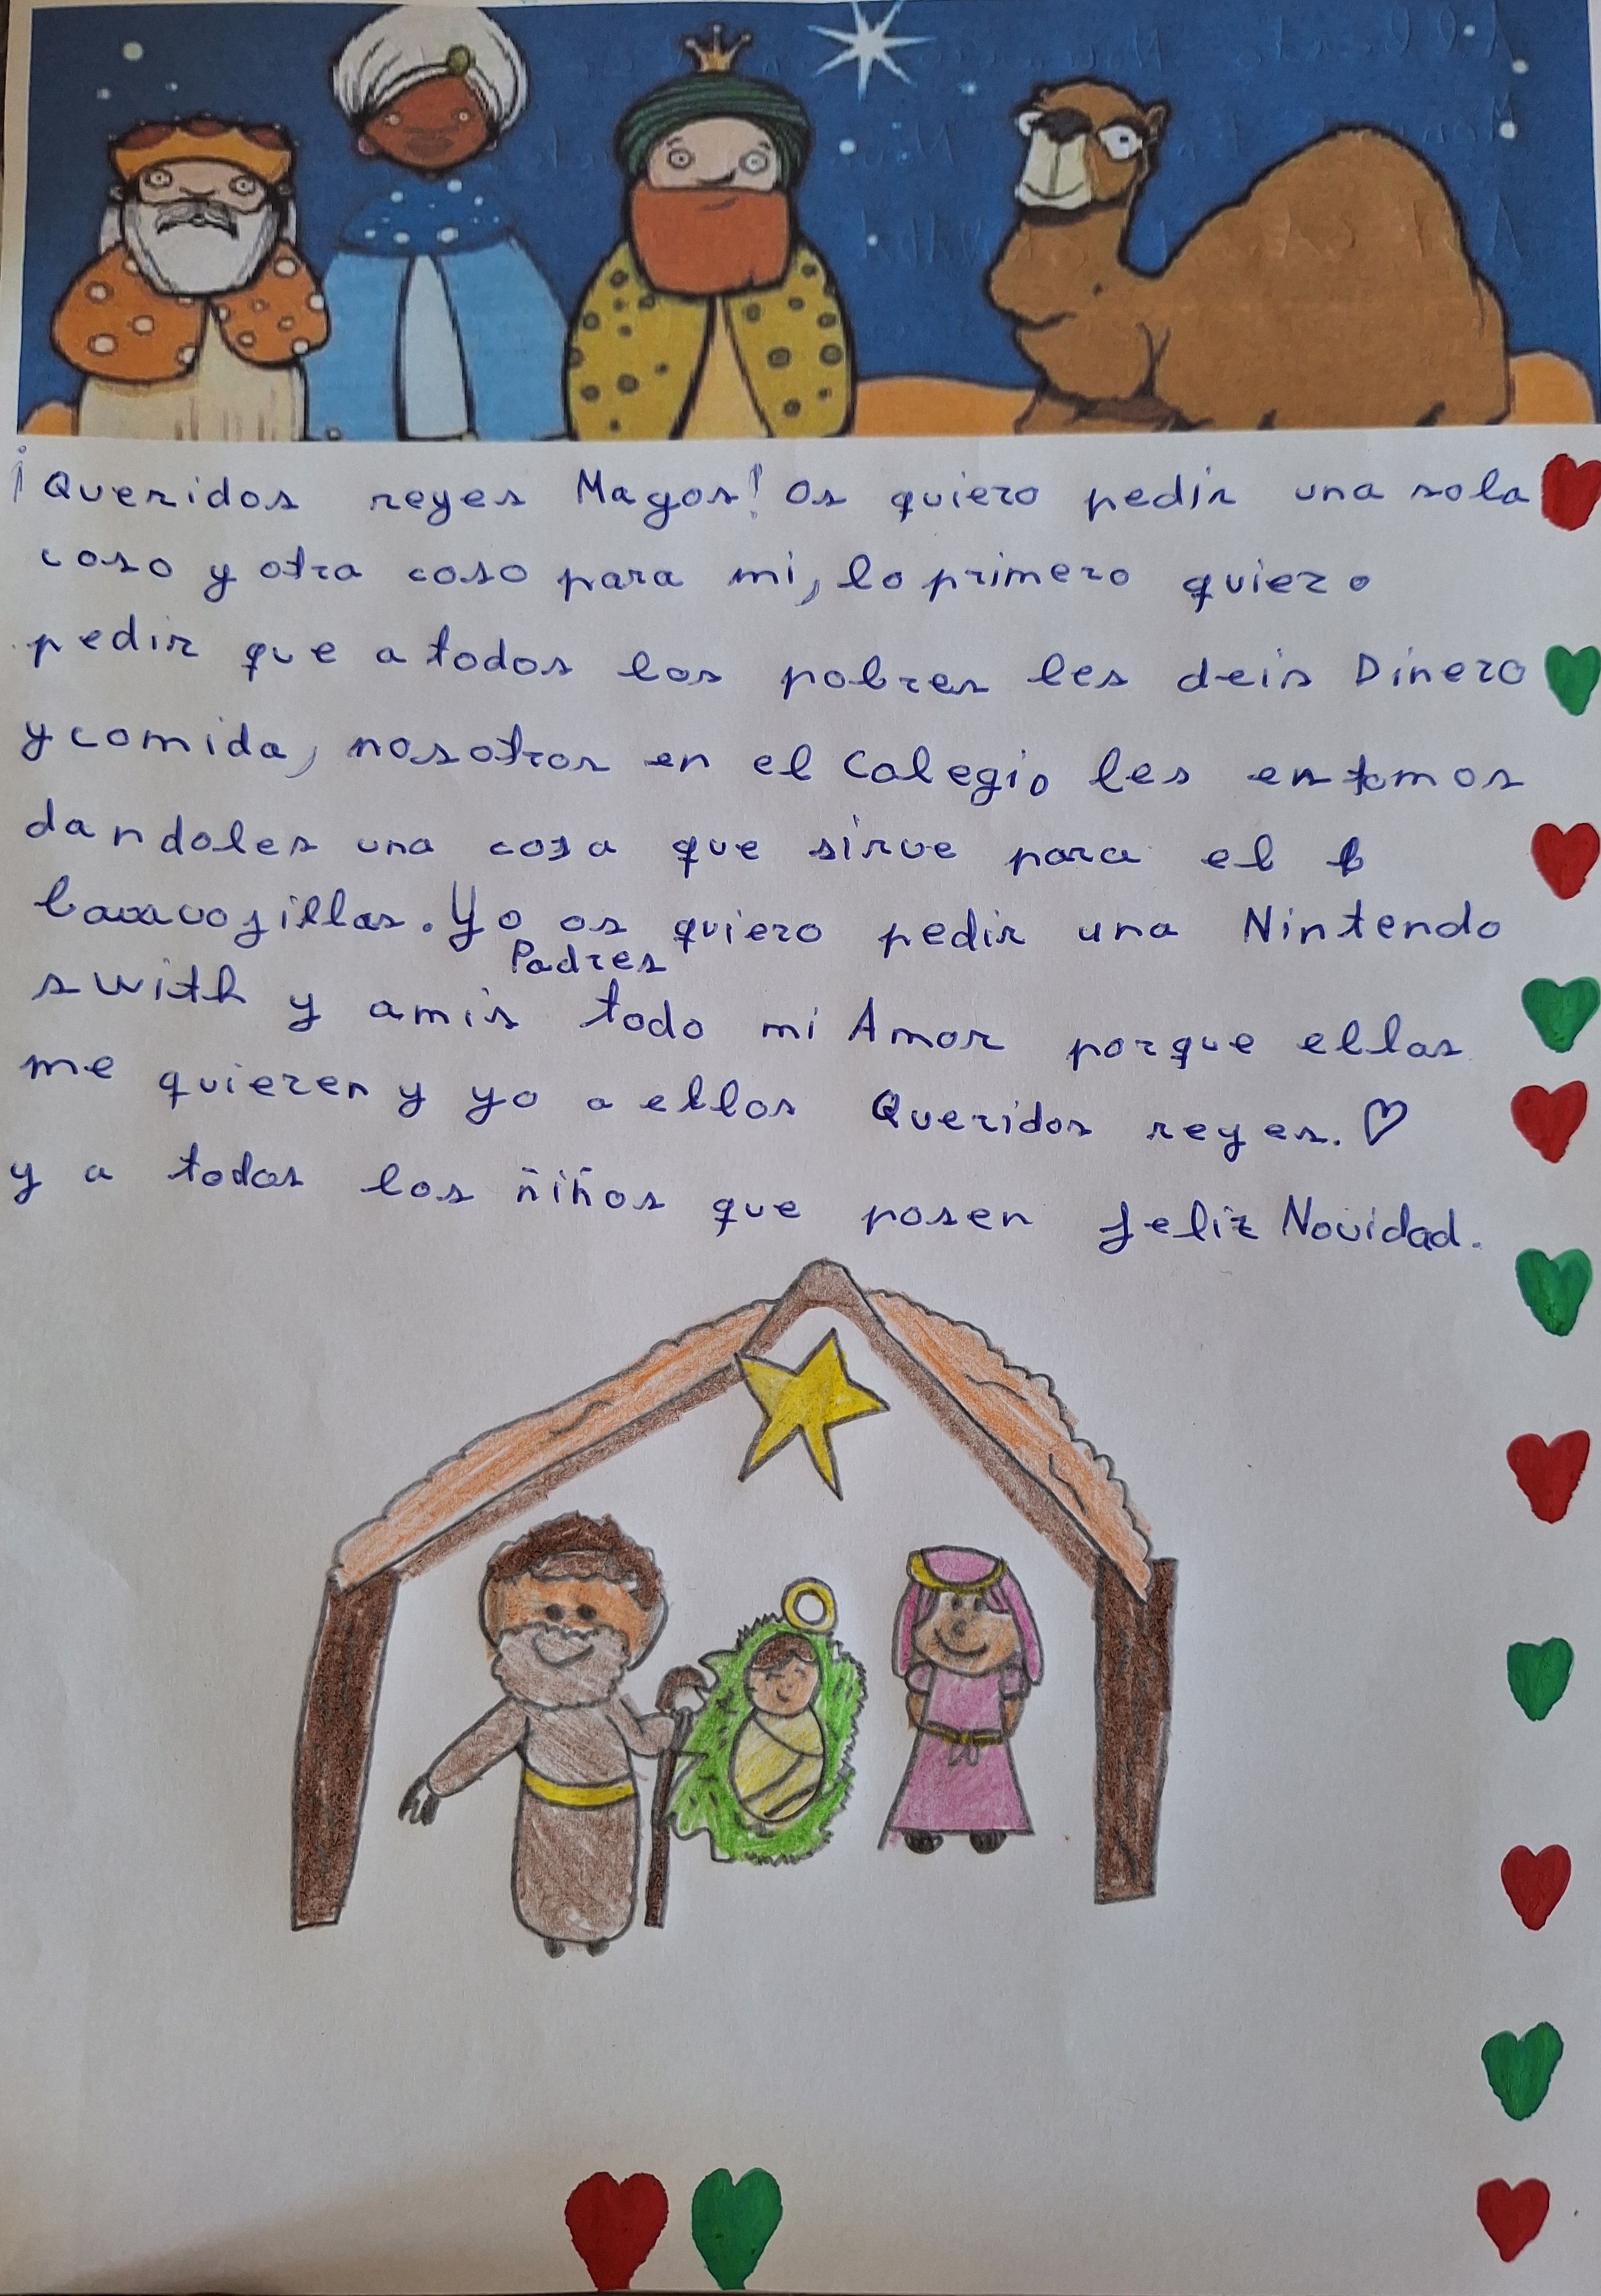 ¡Queridos reyes Magos! Os quiero pedir una sola
coso y otra coso para mi, lo primero quiero
pedir que a todos los pobres les deis Dinero
y comida, nosotros en el Colegio les estamos
dandoles una cosa que sirve para el
lavavojillas. Yo os quiero pedir una Nintendo
Padres
swith y amis todo mi Amor porque ellos
me quieren y yo a ellos Queridos reyes. ♡
y a todos los ñiños que posen feliz Novidad.